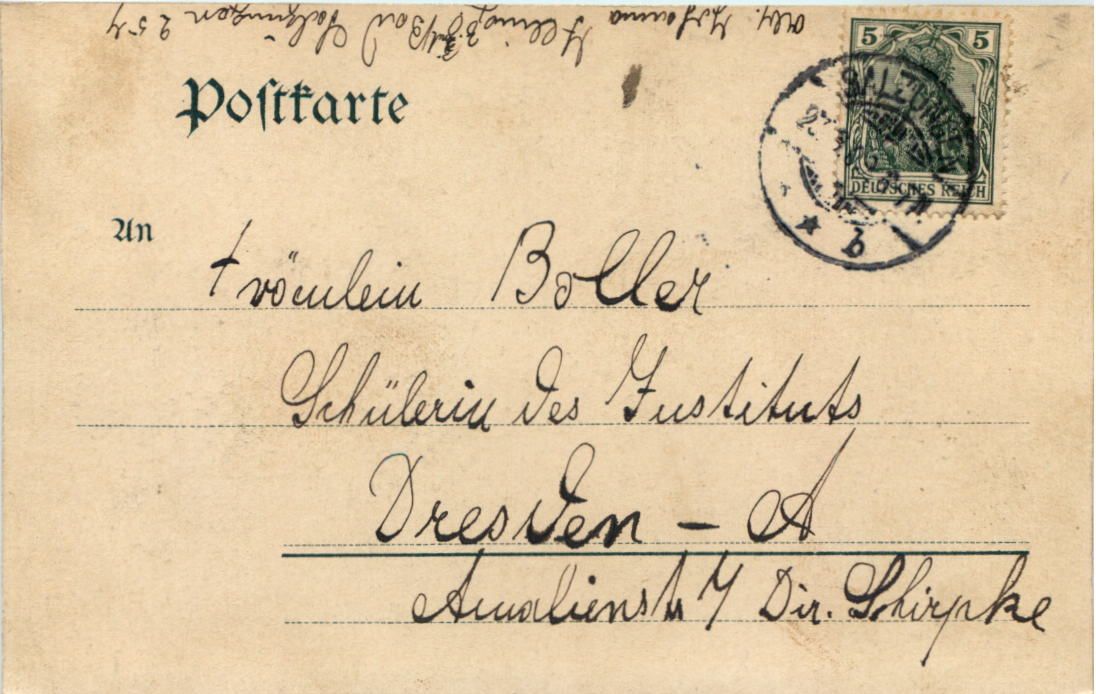 Postkarte
5 5
SALZUNGEN
DEUTSCHES REICH
* b
An
Fräulein Boller
Schülerin des Instituts
Dresden - A
Amalienstr Dir. Schirpke
Johanna
Bad Salzungen